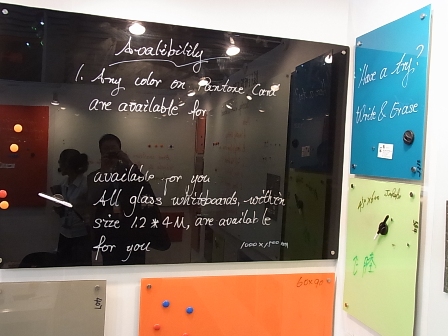 Availibility
1. Any color on Pantone Card
are available for
available for you
All glass whiteboards, within
size 1.2 * 4M, are available
for you
1000 x 1500 mm
Have a try?
Write & Erase
60 x 90